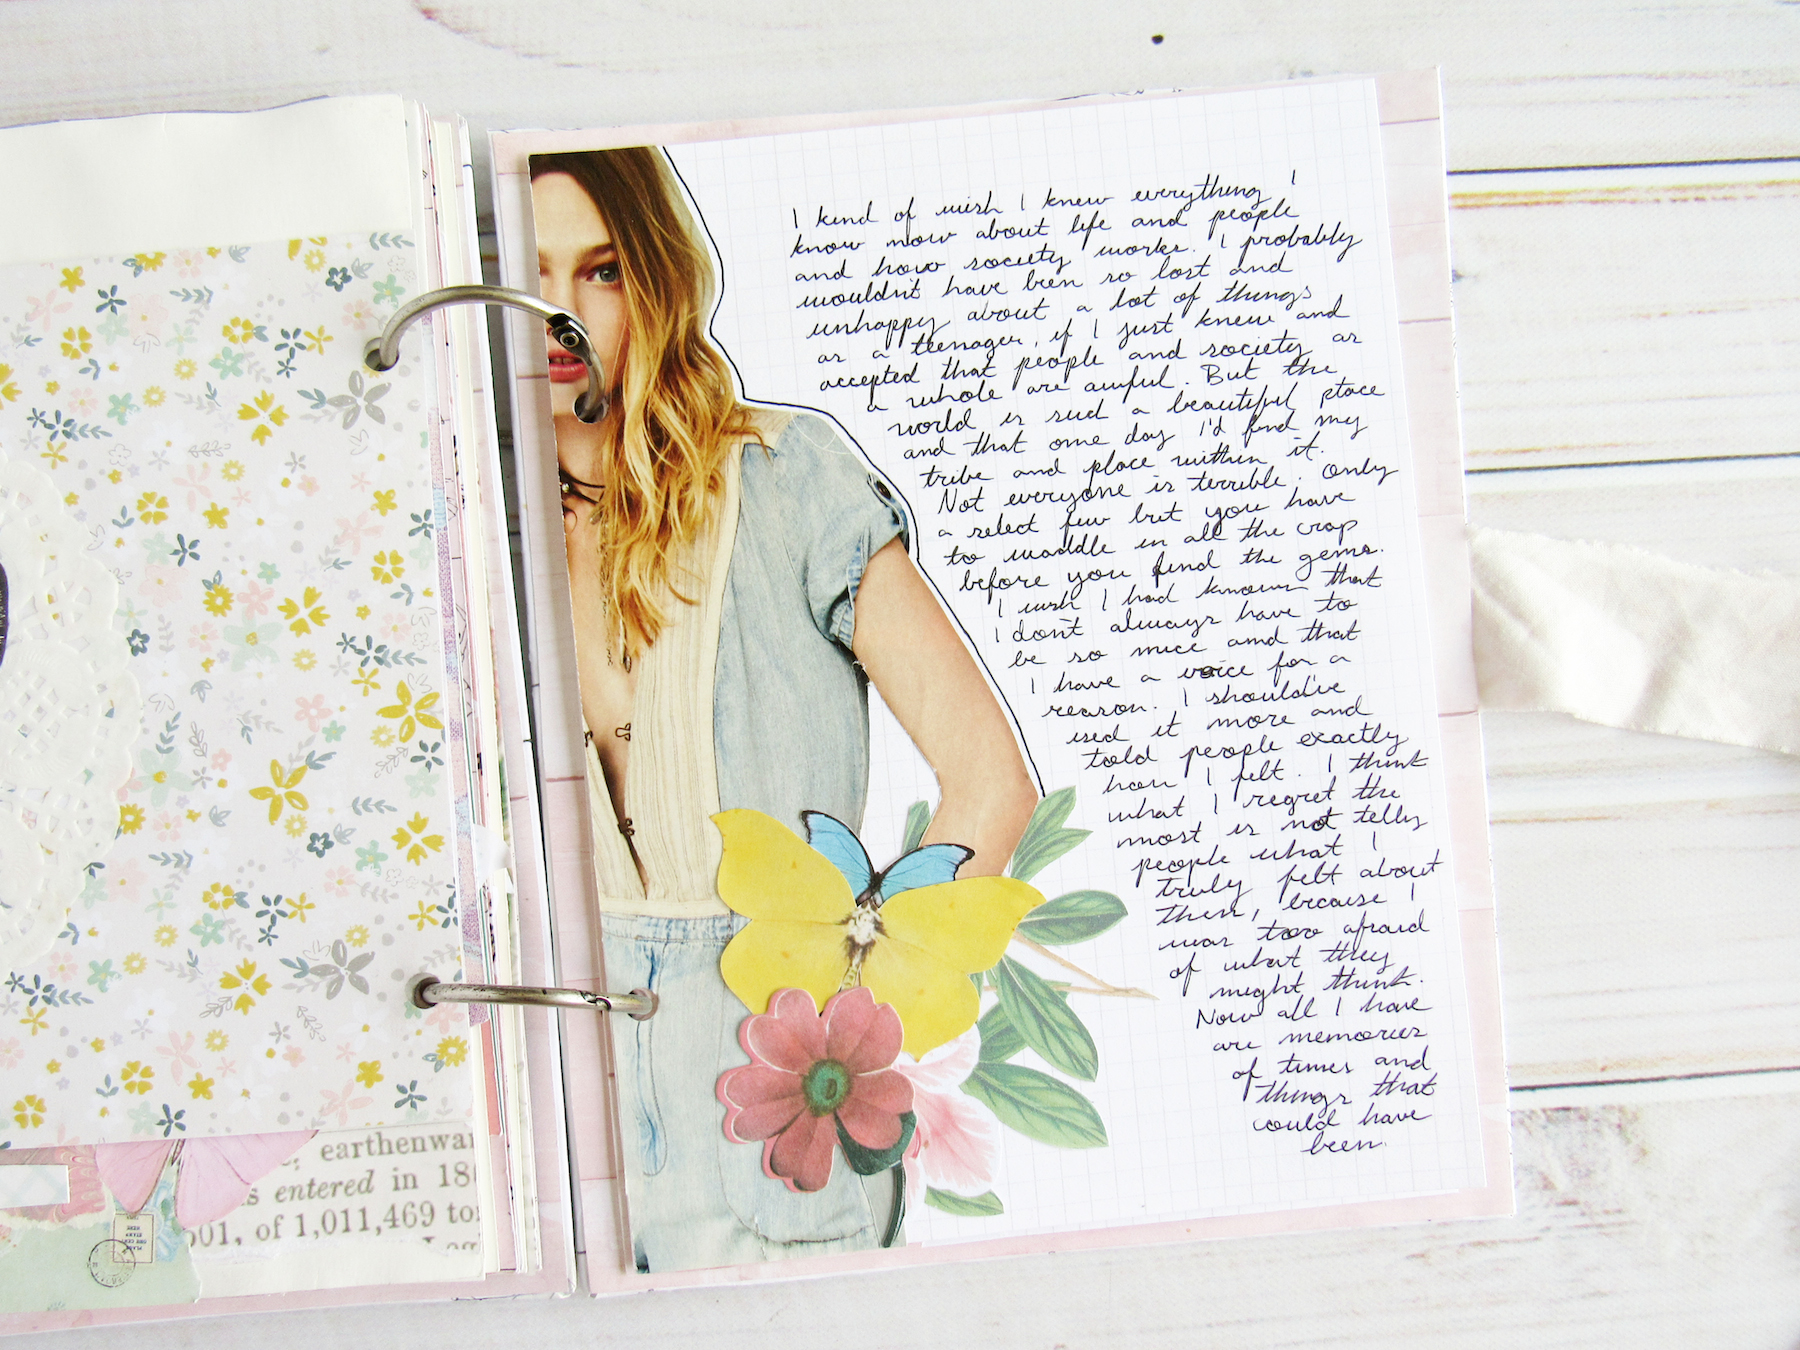 I kind of wish I knew everything I
know now about life and people
and how society works. I probably
wouldn't have been so lost and
unhappy about a lot of things
as a teenager, if I just knew and
accepted that people and society as
a whole are awful. But the
world is such a beautiful place
and that one day I'd find my
tribe and place within it.
Not everyone is terrible. Only
a select few but you have
to waddle in all the crap
before you find the gems.
I wish I had known that
I don't always have to
be so nice and that
I have a voice for a
reason. I should've
used it more and
told people exactly
how I felt. I think
what I regret the
most is not telly
people what I
truly felt about
them, because I
was too afraid
of what they
might think.
Now all I have
are memories
of times and
things that
could have
been.
earthenwar
entered in 18
501, of 1,011,469 to